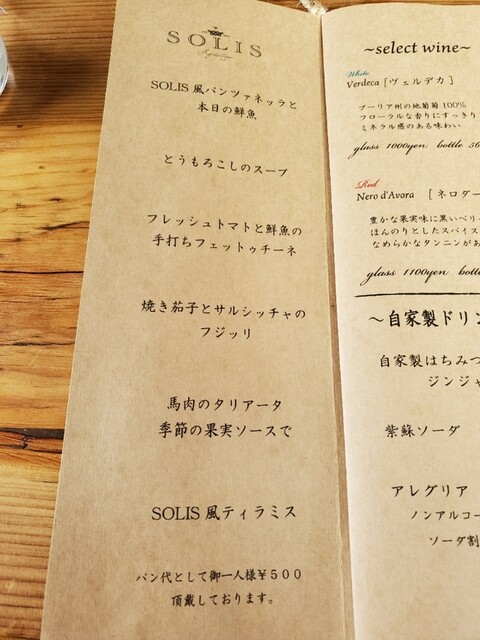 SOLIS
SOLIS 風パンツァネッラと
本日の鮮魚
とうもろこしのスープ
フレッシュトマトと鮮魚の
手打ちフェットゥチーネ
焼き茄子とサルシッチャの
フジッリ
馬肉のタリアータ
季節の果実ソースで
SOLIS 風ティラミス
パン代として御一人様￥500
頂戴しております。
~select wine~
White
Verdeca [ヴェルデカ]
プーリア州の地葡萄 100%
フローラルな香りにすっきり
ミネラル感のある味わい
glass 1000yen bottle 56
Red
Nero d'Avora [ネロダー
豊かな果実味に黒いベリー
ほんのりとしたスパイス
なめらかなタンニンがあ
glass 1100yen bottl
～自家製ドリン
自家製はちみつ
ジンジャ
紫蘇ソーダ
アレグリア
ノンアルコー
ソーダ割